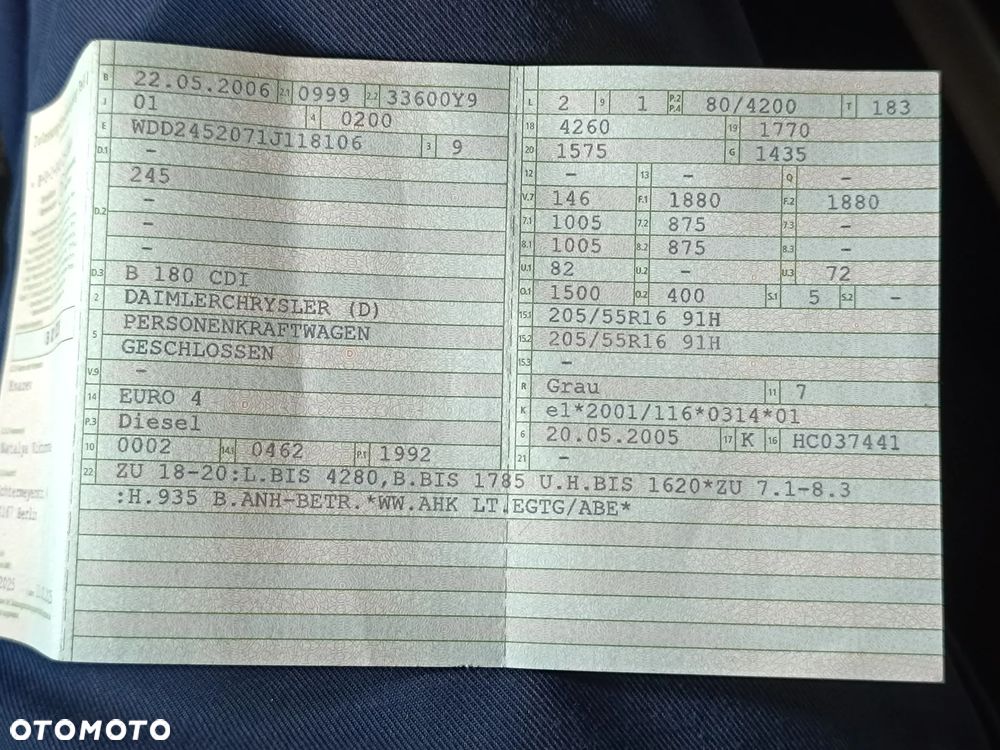 B 22.05.2006 2.1 0999 2.2 33600Y9
J 01 4 0200
E WDD2452071J118106 3 9
D.1 -
245
D.2 -
-
-
D.3 B 180 CDI
2 DAIMLERCHRYSLER (D)
5 PERSONENKRAFTWAGEN
GESCHLOSSEN
V.9 -
14 EURO 4
P.3 Diesel
10 0002 14.1 0462 P.1 1992
L 2 9 1 P.2 P.4 80/4200 T 183
18 4260 19 1770
20 1575 G 1435
12 - 13 - Q -
V.7 146 F.1 1880 F.2 1880
7.1 1005 7.2 875 7.3 -
8.1 1005 8.2 875 8.3 -
U.1 82 U.2 - U.3 72
O.1 1500 O.2 400 S.1 5 S.2 -
15.1 205/55R16 91H
15.2 205/55R16 91H
15.3 -
R Grau 11 7
K e1*2001/116*0314*01
6 20.05.2005 17 K 16 HC037441
21 -
22 ZU 18-20:L.BIS 4280,B.BIS 1785 U.H.BIS 1620*ZU 7.1-8.3
:H.935 B.ANH-BETR.*WW.AHK LT.EGTG/ABE*
Berlin
OTOMOTO